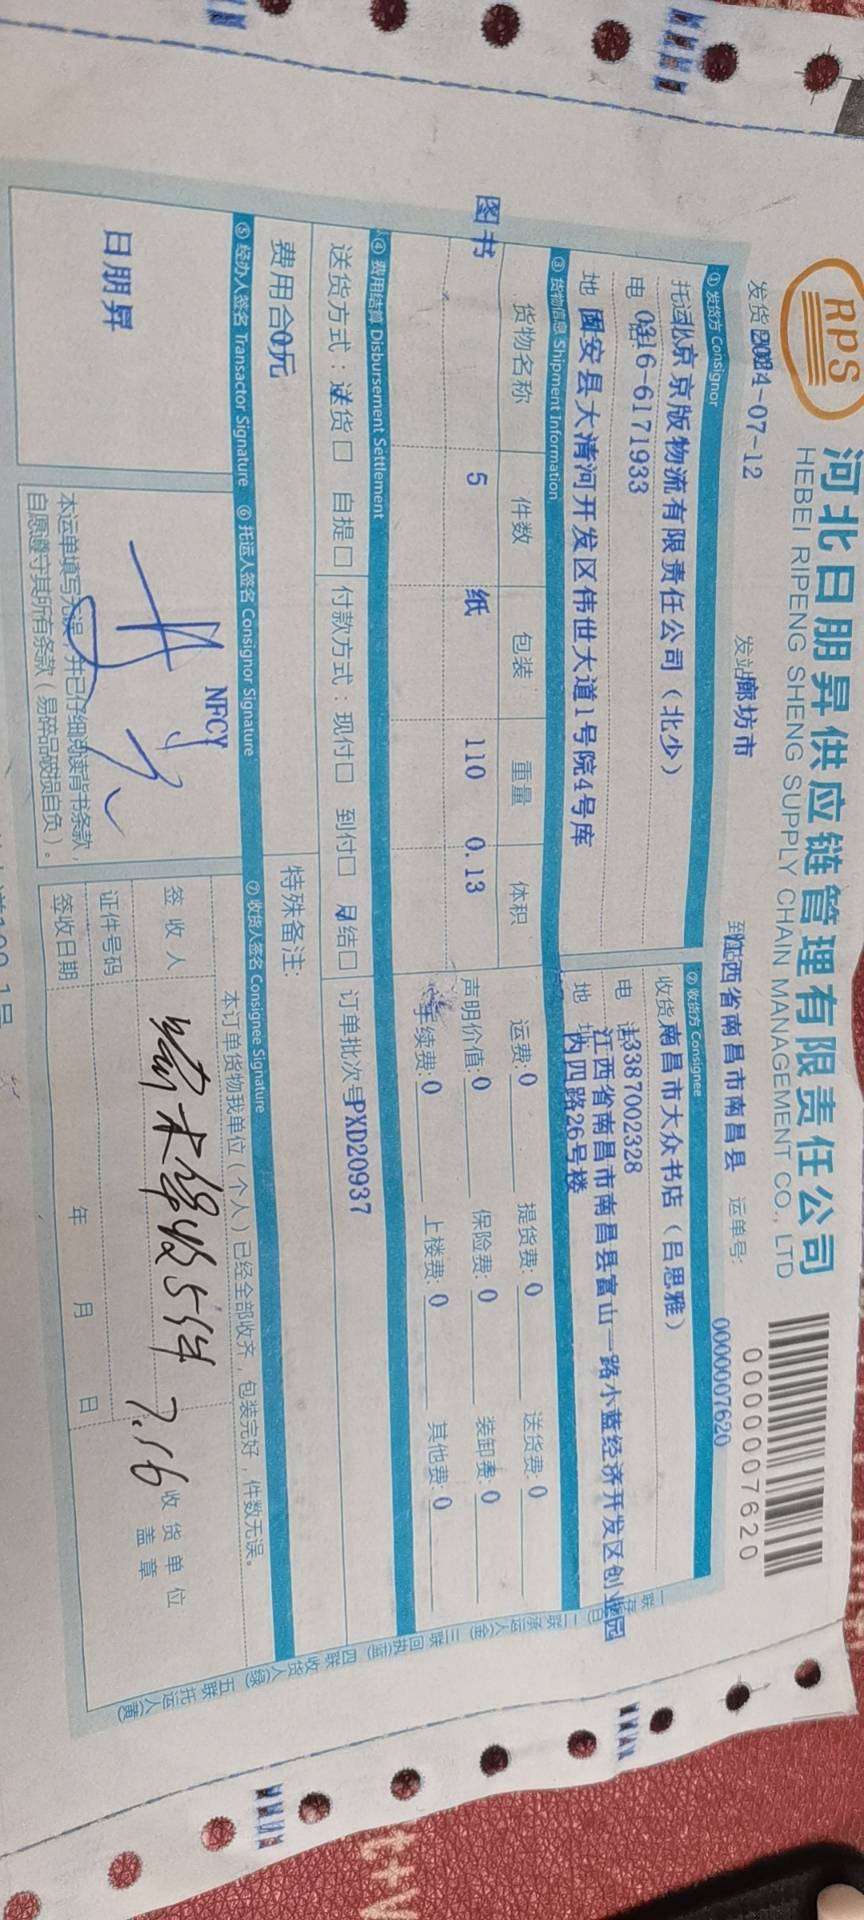 RPS
河北日朋昇供应链管理有限责任公司
HEBEI RIPENG SHENG SUPPLY CHAIN MANAGEMENT CO., LTD
0000007620
发货 2024-07-12 发站 廊坊市 到 江西省南昌市南昌县 运单号: 0000007620
① 发货方 Consignor ② 收货方 Consignee
托运 北京京版物流有限责任公司（北少） 收货 南昌市大众书店（吕思雅）
电话 0316-6171933 电话 13387002328
地 固安县大清河开发区伟世大道1号院4号库 地址 江西省南昌市南昌县富山一路小蓝经济开发区创业园
内四路26号楼
③ 货物信息 Shipment Information
货物名称 件数 包装 重量 体积 运费: 0 提货费: 0 送货费: 0
图书 5 纸 110 0.13 声明价值: 0 保险费: 0 装卸费: 0
手续费: 0 上楼费: 0 其他费: 0
④ 费用结算 Disbursement Settlement
送货方式：送货□ 自提□ 付款方式：现付□ 到付□ 月结□ 订单批次号 PXD20937
费用合 0元 特殊备注:
⑤ 经办人签名 Transactor Signature ⑥ 托运人签名 Consignor Signature ⑦ 收货人签名 Consignee Signature
日朋昇
NFCY
本运单填写无误，并已仔细阅读背书条款，
自愿遵守其所有条款（易碎品破损自负）。
本订单货物我单位（个人）已经全部收齐，包装完好，件数无误。
签收人 收5件 7.16
证件号码
签收日期 年 月 日
收货单位
盖章
一联存 二联承运人(金) 三联回执(蓝) 四联收货人(绿) 五联托运人(黄)